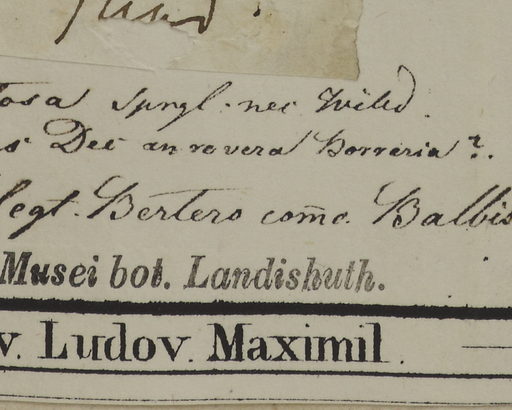 osa Sprgl. nec Willd.
s Dec an revera Borreria?.
legt. Bertero com̃. Balbis
Musei bot. Landishuth.
v. Ludov. Maximil.